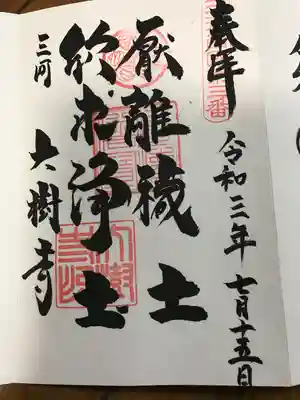 奉拝
令和三年 七月十五日
厭離穢土
欣求浄土
三河 大樹寺